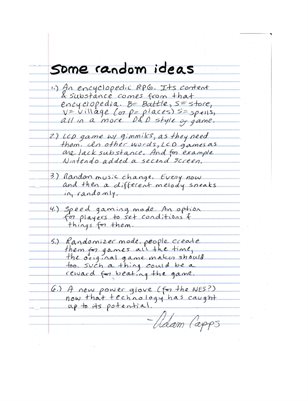 Some random ideas
1.) An encyclopedic RPG. Its content
& substance comes from that
encyclopedia. B= Battle, S= store,
V= Village (or P= places) S= spells,
all in a more D&D style by game.
2) LCD game w/ gimmiks, as they need
them. In other words, LCD games as
are, lack substance. And for example
Nintendo added a second screen.
3) Random music change. Every now
and then a different melody sneaks
in randomly.
4.) Speed gaming mode. An option
for players to set conditions &
things for them.
5.) Randomizer mode. people create
them for games all the time,
the original game makers should
too. Such a thing could be a
reward for beating the game.
6.) A new power glove (for the NES?)
now that technology has caught
up to its potential.
-Adam Capps